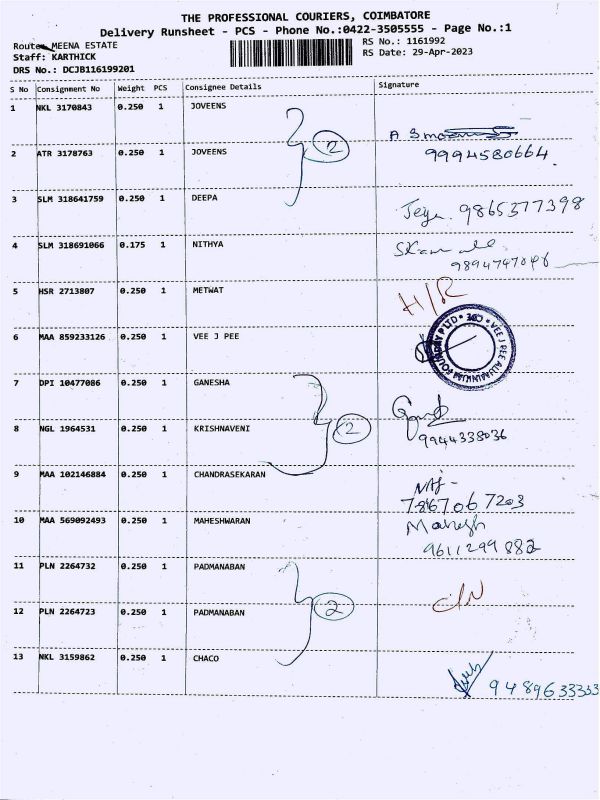 THE PROFESSIONAL COURIERS, COIMBATORE
Delivery Runsheet - PCS - Phone No.:0422-3505555 - Page No.:1
Route: MEENA ESTATE
RS No.: 1161992
Staff: KARTHICK
RS Date: 29-Apr-2023
DRS No.: DCJB116199201
S No Consignment No Weight PCS Consignee Details Signature
1 NKL 3170843 0.250 1 JOVEENS
2
2 ATR 3178763 0.250 1 JOVEENS 9994580664
3 SLM 318641759 0.250 1 DEEPA 9865377398
4 SLM 318691066 0.175 1 NITHYA
5 HSR 2713807 0.250 1 METWAT H/R
6 MAA 859233126 0.250 1 VEE J PEE
VEE J PEE ALUMINIUM FOUNDRY P LTD
7 DPI 10477086 0.250 1 GANESHA
8 NGL 1964531 0.250 1 KRISHNAVENI 2 9944338036
9 MAA 102146884 0.250 1 CHANDRASEKARAN 7867067203
10 MAA 569092493 0.250 1 MAHESHWARAN Mahesh
9611299882
11 PLN 2264732 0.250 1 PADMANABAN
12 PLN 2264723 0.250 1 PADMANABAN 2
13 NKL 3159862 0.250 1 CHACO 9489633333